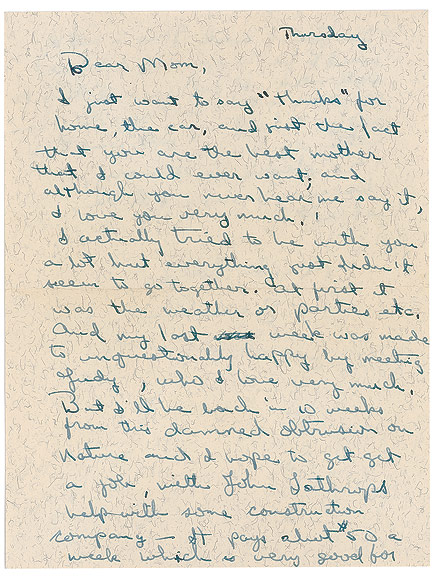 Thursday
Dear Mom,
I just want to say "thanks" for
home, the car, and just the fact
that you are the best mother
that I could ever want; and
although you never hear me say it,
I love you very much.!
I actually tried to be with you
a lot but everything just didn't
seem to go together. At first it
was the weather or parties etc.
And my last week was made
to unquestionably happy by meeting
Judy, who I love very much.
But I'll be back in 10 weeks
from this damned obtrusion on
Nature and I hope to get get
a job, with John Lothrops
help with some construction
company – It pays about $50 a
week which is very good for